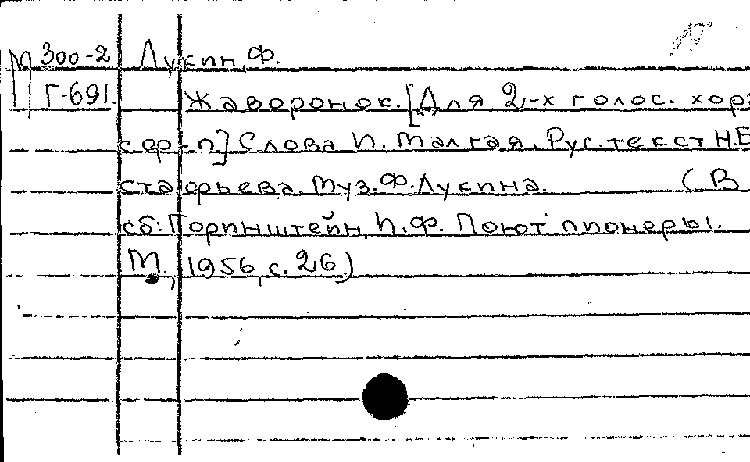 М 300-2 Лукин, Ф.
Г-691. Жаворонок. [Для 2-х голос. хора
с фп.] Слова И. Малгая. Рус. текст Н. Ев
стафьева. Муз. Ф. Лукина. (В
сб: Горинштейн, И.Ф. Поют пионеры.
М., 1956, с. 26)